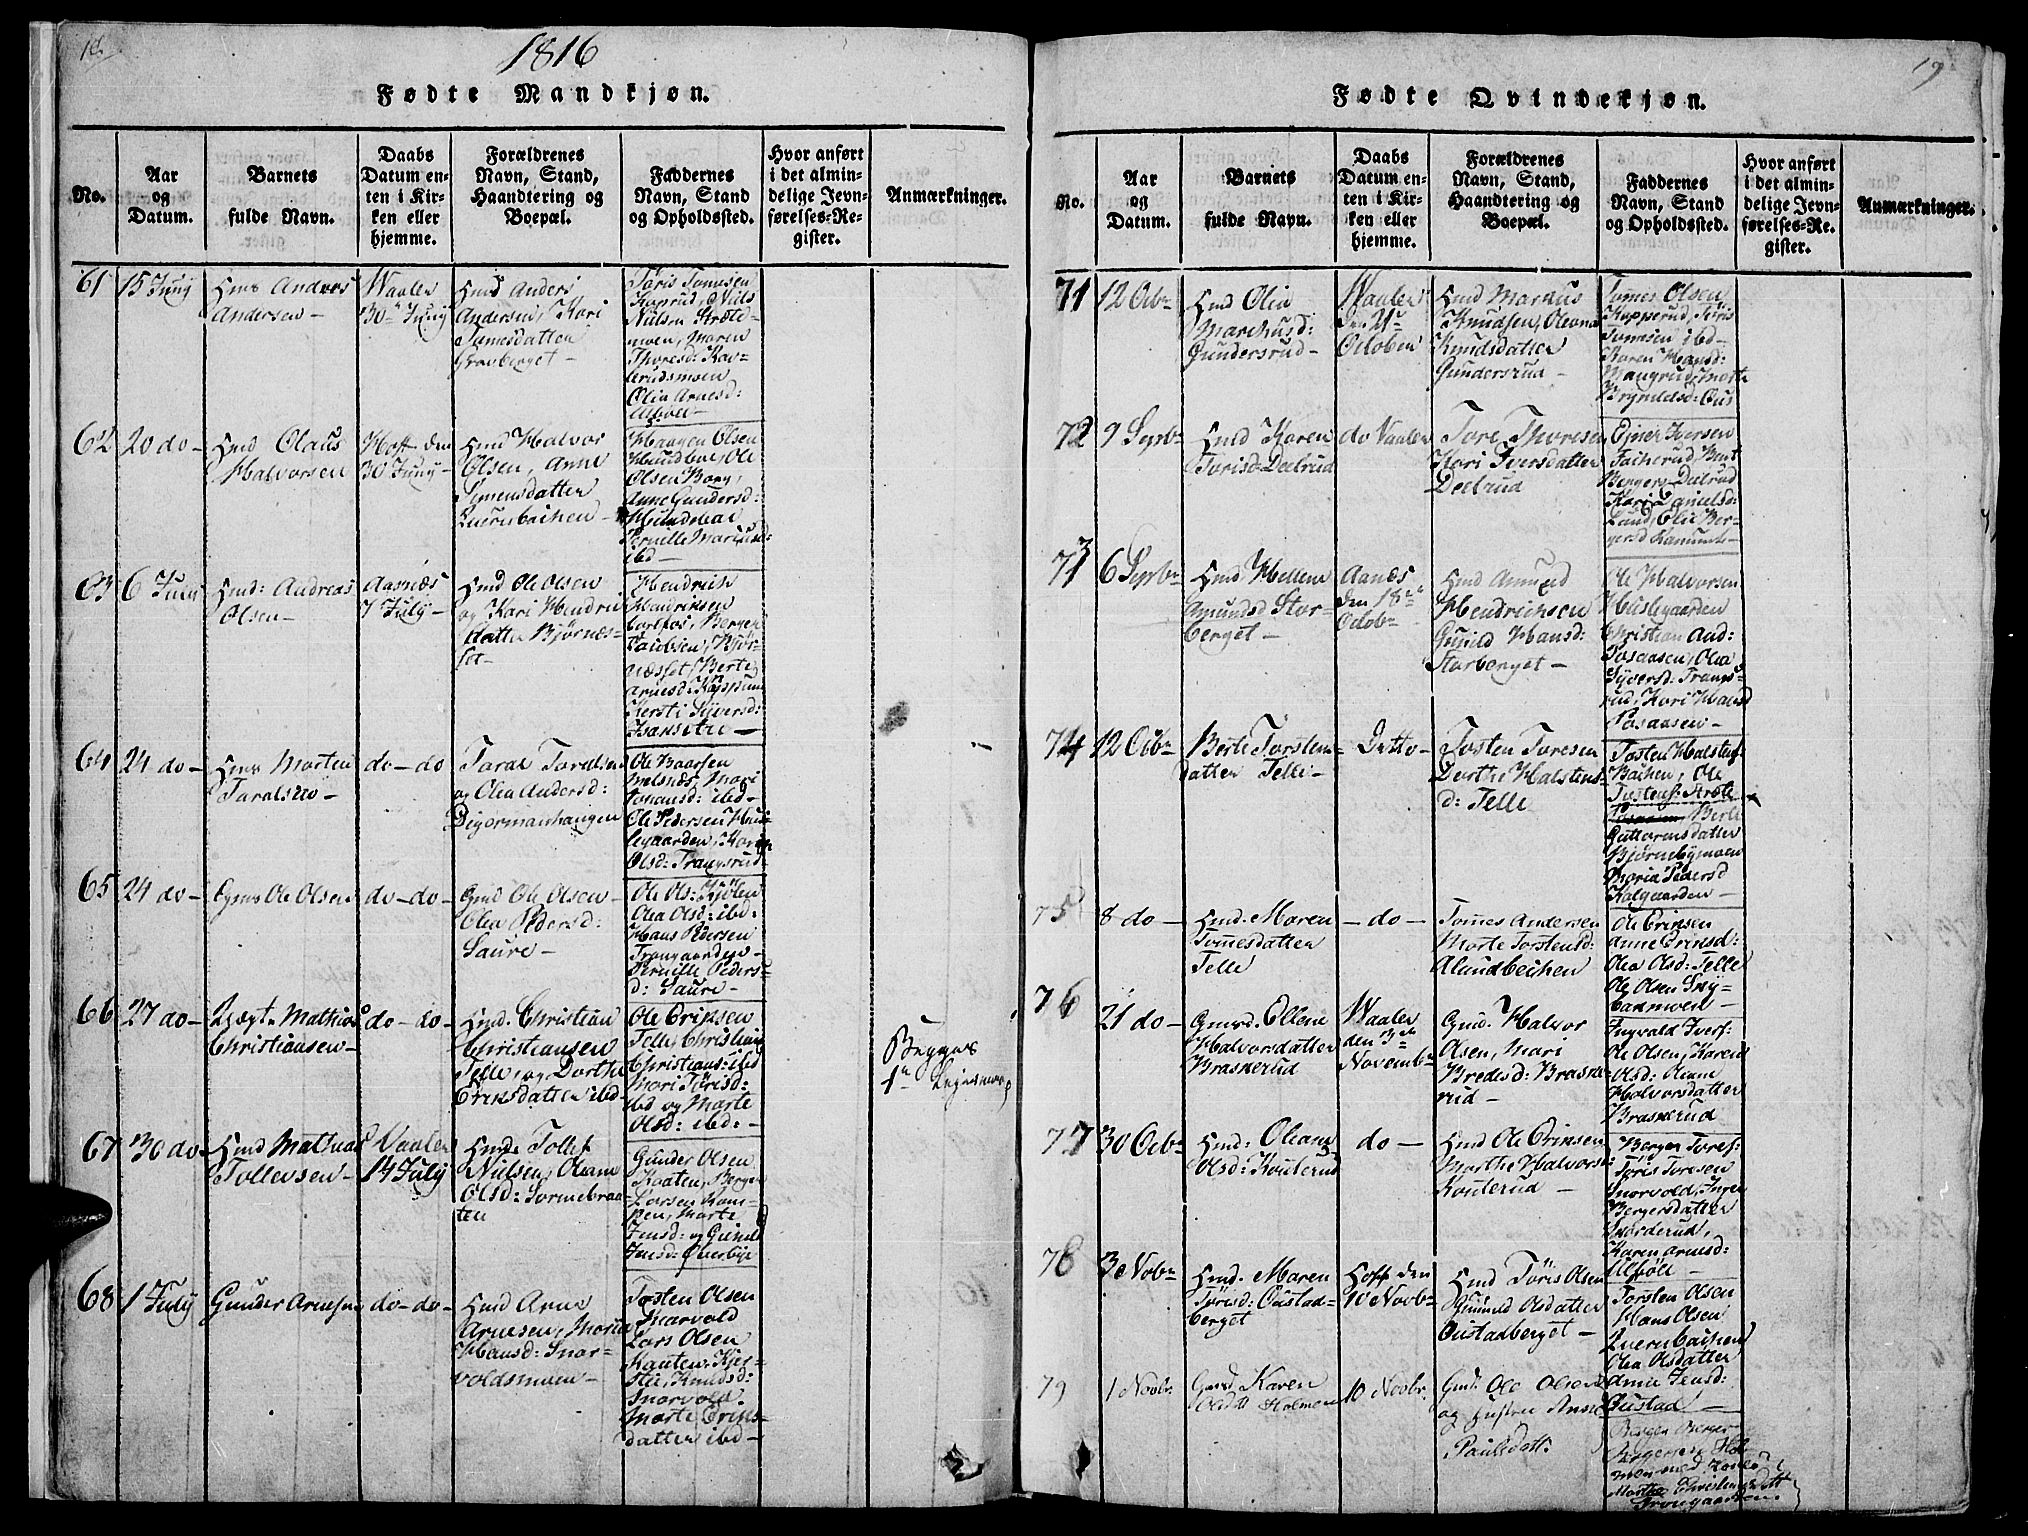 18
1816
Fødte Mandkjøn.
No.
Aar
og
Datum.
Barnets
fulde Navn.
Daabs
Datum en-
ten i Kir-
ken eller
hjemme.
Forældrenes
Navn, Stand,
Haandtering og
Boepæl.
Faddernes
Navn, Stand
og Opholdssted.
Hvor anført
i det almin-
delige Jevn-
førelses-Re-
gister.
Anmærkninger.
61
15 Juny
Hmd Anders
Andersen-
Waaler
30 Juny
Hmd Anders
Andersen, Kari
Tomesdatter
Graaberget-
Toris Tomesen
Nils
Nilsen Stræte-
moen, Maren
Thoresd:
Olia Arnesd:
62
20 do-
Hmd Olaus
Halvorsen
Hoff den
30 Juny-
Hmd Halvor
Olsen, Anne
Simensdatter
Quernbachen-
Haagen Olsen
Ole
Olsen Berg,
Anne Gundersd:
Pernille
ibd-
63
6 July
Hmd: Andreas
Olsen-
Aasnæs
7 July-
Hmd Ole Olsen
og Kari Hendri
datter Bjørnes=
set-
Hendrich
Hendriksen
Berger
Jacobsen, Bjør-
næsset, Berte
Arnesd:
Kersti Syversd:
64
24 do-
Hmd Morten
Taralsen-
do-do
Taral Taralsen
og Olea Andersd:
Ole Baarsen
Mari
Johansd: ibd-
Ole Pedersen Hus-
legaarden, Karen
Olsd: Trangsrud-
65
24 do-
Ole Olsen
do-do-
Gmd Ole Olsen-
Olea Pedersd:
Saure-
Ole Ols: Kjølen
Olea Olsd: ibd:
Hans Pedersen
Trongaarden-
Pernille Peders=
d: Saure-
66
27 do-
Uægt. Mathias
Christiansen-
do-do-
Hmd. Christian
Christiansen
Telle, og Dorthe
Eriksdatter ibd-
Ole Eriksen
Telle, Christian
Christians: ibd
Mari Törisd:
ibd og Marte
Olsd: ibd:-
Begges
1te Lejermaal
67
30 do-
Hmd Mathias
Tollevsen-
Vaaler
14 July
Hmd Tollef
Nilsen, Oleane
Olsd: Sormebraa-
ten
Gunder Olsen
Berger
Larsen Kam-
pen, Marte
Jensd: og Gunild
Jensd: Øverbye
68
1 July
Gunder Arnesen
do-do-
Hmd Arne
Arnesen, Maria
Hansd: Snar-
voldsmoen-
Tosten Olsen
Snarvold
Lars Olsen
Kjer-
sti, Knudsd:
Snarvold.
Marte Eriks-
datter ibd-
19
Fødte Qvindekjøn.
No.
Aar
og
Datum.
Barnets
fulde Navn.
Daabs
Datum en-
ten i Kir-
ken eller
hjemme.
Forældrenes
Navn, Stand,
Haandtering og
Boepæl.
Faddernes
Navn, Stand
og Opholdssted.
Hvor anført
i det almin-
delige Jevn-
førelses-Re-
gister.
Anmærkninger.
71
12 Ocbr
Hmd Olia
Marchusd:
Gundersrud-
Waaler
den
October
Hmd Markus
Knudsen, Oleana
Knudsdatter
Gundersrud-
Tomes Olsen
Kopperud, Toris
Tomesen ibd-
Karen Hansd:
Maugrud, Marte
Brynildsd:
72
9 Sepbr
Hmd Karen
Torisd Deelrud
do Vaaler
Tore Thoresen
Kari Iversdatter
Deelrud
Ejner Iversen
Berger Deelrud
Kari Danielsd:
Lund, Elie Ber-
gersd
73
6 Sepbr
Hmd Hellene
Amundsd Stor-
berget-
Aanes
den 18de
Octobr
Hmd Amund
Hendrichsen
Gunild Hansd:
Storberget-
Ole Halvorsen
Huslegaarden
Christian And:
Posaasen, Olea
Syversd: Trangs-
rud, Kari Hansd
Posaasen-
74
12 Ocbr
Berte Torstens
datter Telle-
Ditto-
Tosten Toresen
Dorthe Halstens
d: Telle
Tosten Halstens
Bachen, Ole
Tostens: Stræte
Berte
Guttormsdatter
Bjørnebymoen
Maria Pedersd
Kalgaarden-
75
8 do-
Hmd. Maren
Tomesdatter
Telle
-do-
Tomes Andersen
Marte Torstensd:
Ole Eriksen
Anne Eriksd:
Olea Olsd: Telle
Ole Olsen
76
21 do-
Ellene
Halvorsdatter
Braskerud
Waaler
den 3de
Novembr
Gmd. Halvor
Olsen, Mari
Bredesd: Braske-
rud-
Ingvald Ivers:
Ole Olsen, Karen
Olsd: Oleane
Halvorsdatter
Braskerud
77
30 Ocbr
Hmd: Oleane
Olsd: Kouterud
do-
Hmd Ole Eriksen
Marthe Halvorsd:
Kouterud-
Berger Tores:
Töris Toresen
Snarvold, Inger
Bergersdatter
Karen Arnesd:
78
3 Nobr
Hmd. Maren
Törisd: Oustad-
berget
Hoff den
10 Novbr
Hmd Töris Olsen
Gunnild Olsdatter
Oustadberget-
Torsten Olsen
Hans Olsen
Quernbachen
Olea Olsdatter
Anne Jensd:
Oustad-
79
1 Novbr.
Gmd Karen
Olsdtr Holmen
10 Novbr
Gmd. Ole Olsen
og hustru Anne
Paulsdatt:
Berger Berger-
men med Kone
Marthe Christensdatt
Trongaarden.